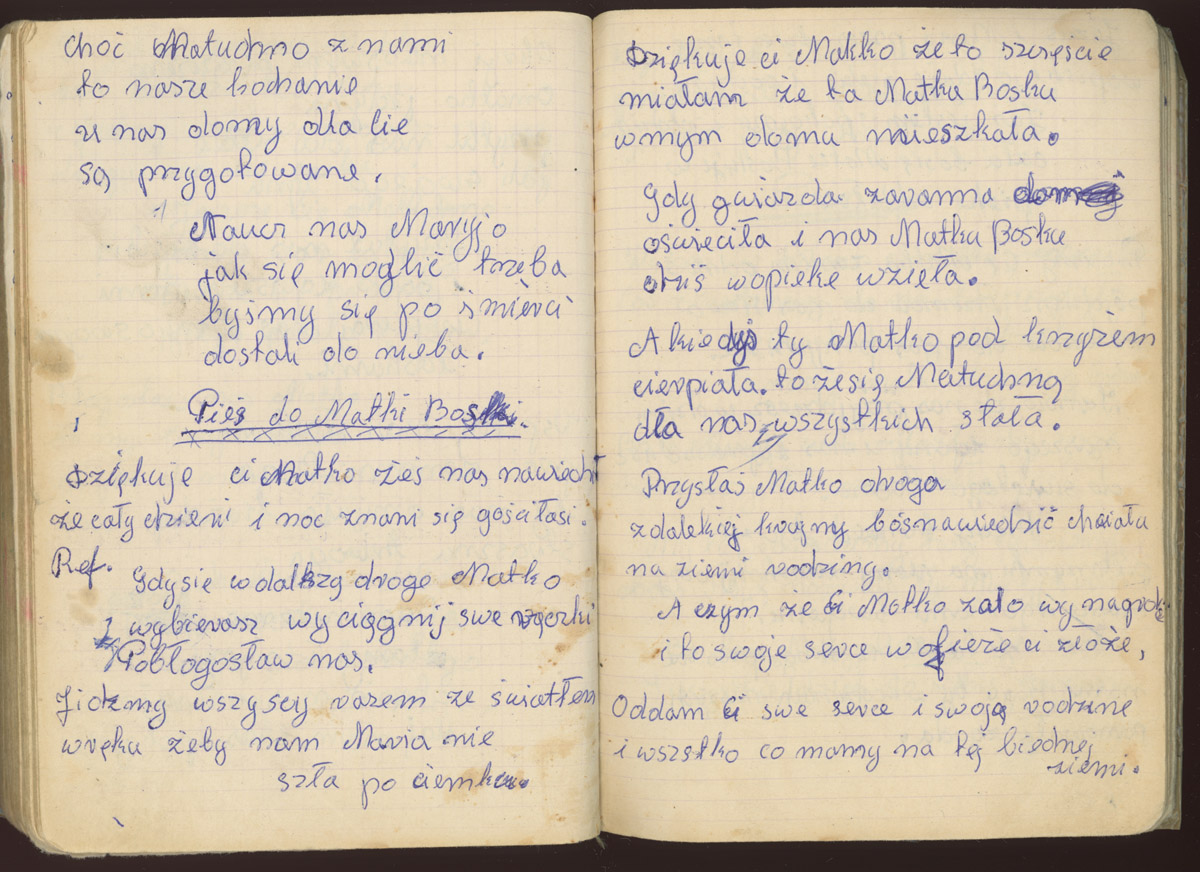 choć Matuchno z nami
to nasze kochanie
u nas domy dla cie
są przygotowane.
Naucz nas Maryjo
jak się modlić trzeba
byśmy się po śmierci
dostali do nieba.
Pieś do Matki Boski.
Dziękuje ci Matko żeś nas nawiedz
że cały dzień i noc znami się gościłaś.
Ref. Gdysię wdalszą droge Matko
wybierasz wyciągnij swe rączki
Pobłogosław nas.
Jidzmy wszyscy razem ze światłem
wręku żeby nam Maria nie
szła po ciemku.
Dziękuje ci Matko że to szczęście
miałam że ta Matka Boska
wmym domu mieszkała.
Gdy gwiazda zaranna
oświeciła i nas Matka Boska
dziś wopieke wzięła.
A kiedyś ty Matko pod krzyżem
cierpiała. to żeśię Matuchną
dla nas wszystkich stała.
Przyszłaś Matko droga
zdalekiej krainy boś nawiedzić chciała
na ziemi rodziny.
A czym że Ci Matko zato wynagrodzę
i to swoje serce wofieże ci złoże,
Oddam Ci swe serce i swoją rodzine
i wszstko co mamy na tej biednej
ziemi.